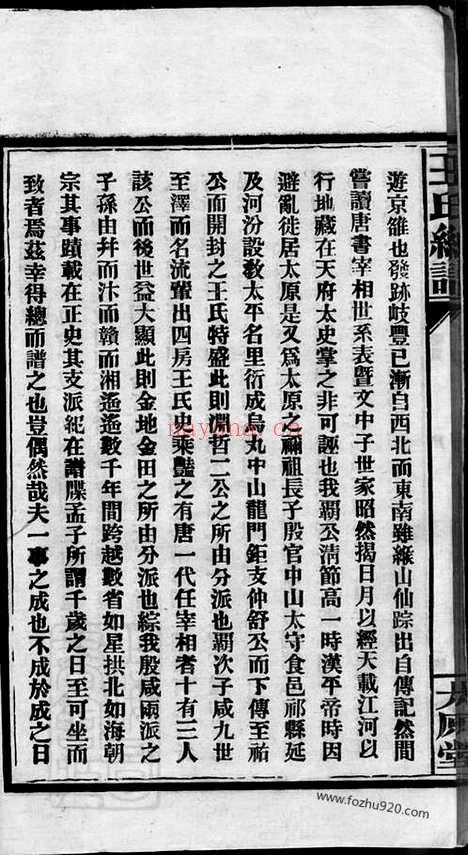 王氏總譜
太原堂
遊京雒也發跡岐豐已漸自西北而東南雖緱山仙踪出自傳記然間
嘗讀唐書宰相世系表暨文中子世家昭然揭日月以經天載江河以
行地藏在天府太史掌之非可誣也我覇公淸節高一時漢平帝時因
避亂徙居太原是又爲太原之禰祖長子殷官中山太守食邑祁縣延
及河汾設敎太平名里衍成烏丸中山龍門鉅支仲舒公而下傳至祐
公而開封之王氏特盛此則潤哲二公之所由分派也覇次子咸九世
至澤而名流輩出四房王氏史乘豔之有唐一代任宰相者十有三人
該公而後世益大顯此則金地金田之所由分派也綜我殷咸兩派之
子孫由幷而汴而贛而湘遙遙數千年間跨越數省如星拱北如海朝
宗其事蹟載在正史其支派紀在譜牒孟子所謂千歲之日至可坐而
致者焉茲幸得總而譜之也豈偶然哉夫一事之成也不成於成之日
nayona.cn
www.fozhu920.com